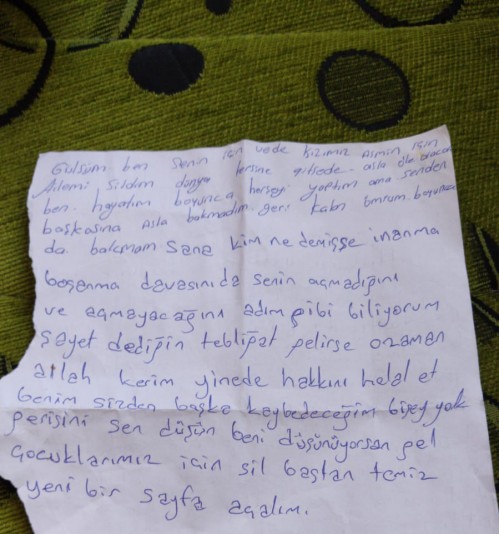 Gülsüm ben senin için vede kızımız Asmin için
Ailemi sildim dünya tersine gitsede asla
ben hayatım boyunca herşeyi yaptım ama senden
başkasına asla bakmadım geri kalan ömrüm boyunca
da bakmam sana kim ne demişse inanma
boşanma davasınıda senin açmadığını
ve açmayacağını adım gibi biliyorum
şayet dediğin tebligat gelirse ozaman
allah kerim yinede hakkını helal et
benim sizden başka kaybedeceğim bişey yok
gerisini sen düşün beni düşünüyorsan gel
çocuklarımız için sil baştan temiz
yeni bir sayfa açalım.